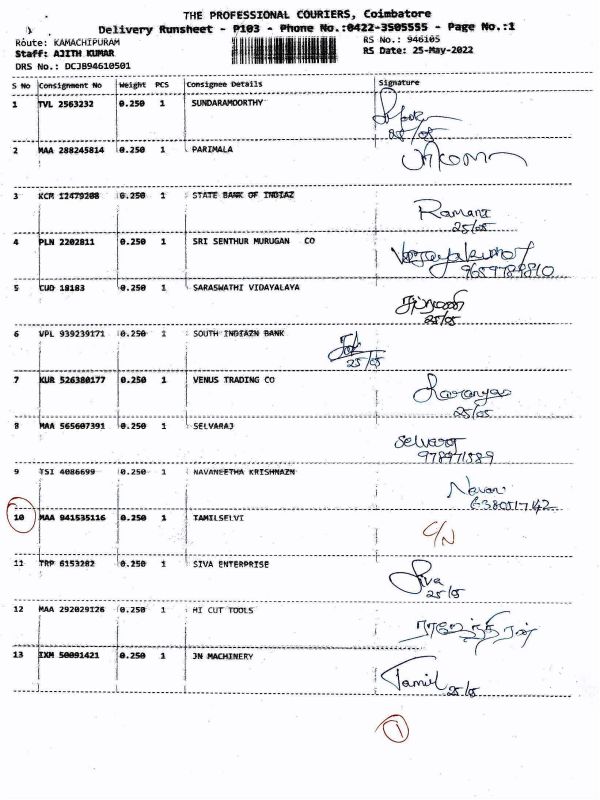 THE PROFESSIONAL COURIERS, Coimbatore
Delivery Runsheet - P103 - Phone No.:0422-3505555 - Page No.:1
Route: KAMACHIPURAM RS No.: 946105
Staff: AJITH KUMAR RS Date: 25-May-2022
DRS No.: DCJB94610501
S No Consignment No Weight PCS Consignee Details Signature
1 TVL 2563232 0.250 1 SUNDARAMOORTHY
25/05
2 MAA 288245814 0.250 1 PARIMALA
3 KCM 12479208 0.250 1 STATE BANK OF INDIAZ
Ramani
25/05
4 PLN 2202811 0.250 1 SRI SENTHUR MURUGAN CO
Vijayakumar
9659789810
5 CUD 18183 0.250 1 SARASWATHI VIDAYALAYA
25/05
6 VPL 939239171 0.250 1 SOUTH INDIAZN BANK
25/05
7 KUR 526380177 0.250 1 VENUS TRADING CO
Saranya
25/05
8 MAA 565607391 0.250 1 SELVARAJ
Selvaraj
978971589
9 TSI 4086699 0.250 1 NAVANEETHA KRISHNAZN
Navan
6380517142
10 MAA 941535116 0.250 1 TAMILSELVI
C/N
11 TRP 6153282 0.250 1 SIVA ENTERPRISE
Siva
25/5
12 MAA 292029126 0.250 1 HI CUT TOOLS
ராஜேந்திரன்
13 IXM 50091421 0.250 1 JN MACHINERY
Tamil 25/5
1